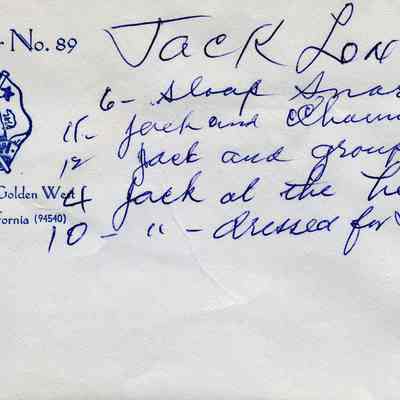 No. 89
Jack Lon
6- Sloop Snar
11- Jack and Charm
12 Jack and group
Golden West
4 Jack at the he
fornia (94540)
10 - " - dressed for